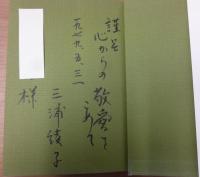 謹呈
心からの
敬愛を
こめて
一九七九、五、三一
三浦綾子
様